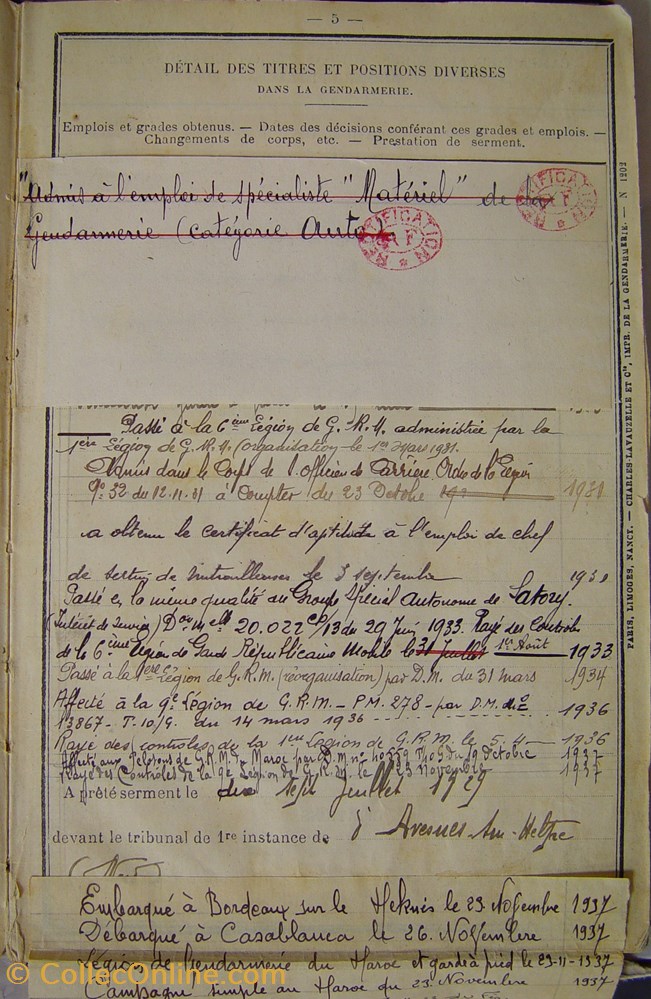 — 5 —
DÉTAIL DES TITRES ET POSITIONS DIVERSES
DANS LA GENDARMERIE.
Emplois et grades obtenus. — Dates des décisions conférant ces grades et emplois. —
Changements de corps, etc. — Prestation de serment.
"Admis à l'emploi de spécialiste "Matériel" de la
Gendarmerie (catégorie Auto)
RECTIFICATION
RECTIFICATION
Passé à la 6ème Légion de G.R.M. administrée par la
1ère Légion de G.R.M. (organisation) 1er Mars 1931.
Admis dans le Corps de l'officier de Carrière Ordre de Légion
No 32 du 12.11.31 à compter du 23 Octobre 1931
a obtenu le certificat d'aptitude à l'emploi de chef
de section de mitrailleuses le 3 septembre
Passé en la même qualité au Groupe Spécial Autonome de Satory.
(Intérêt de service) Don Melle 20.022 /13 du 29 Juin 1933. Rayé des Contrôles
de la 6ème Légion de Garde Républicaine Mobile le 31 juillet 1er Août 1933
Passé à la 1ère Légion de G.R.M. (réorganisation) par D.M. du 31 mars 1934
Affecté à la 9e Légion de G.R.M. - P.M. 278 - par D.M. No
13867 - T.10/G. du 14 mars 1936 1936
Rayé des contrôles de la 1ère Légion de G.R.M. le 5.4 1936
Affecté aux Pelotons de G.R.M. du Maroc par D.M. no du 19 Octobre 1937
Rayé des Contrôles de la 9e Légion de G.R.M. le 23 Novembre 1937
A prêté serment le dix sept juillet 1927
devant le tribunal de 1re instance de d'Avesnes-sur-Helpe
Embarqué à Bordeaux sur le Meknès le 23 Novembre 1937
Débarqué à Casablanca le 26. Novembre 1937
Légion de Gendarmerie du Maroc et garde à pied le 23-11-1937
Campagne simple au Maroc du 23 Novembre 1937
PARIS, LIMOGES, NANCY. — CHARLES-LAVAUZELLE ET Cie, IMPR. DE LA GENDARMERIE. — N 1202
© CollecOnline.com